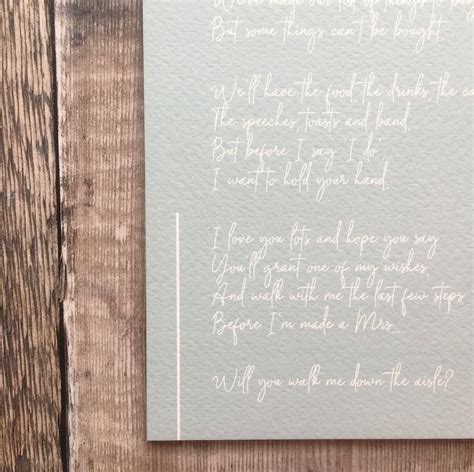 We've made our list of things to
But some things can't be bought.
We'll have the food, the drinks, the
The speeches, toasts and band,
But before I say 'I do'
I want to hold your hand.
I love you lots and hope you say
You'll grant one of my wishes,
And walk with me the last few steps
Before I'm made a Mrs...
Will you walk me down the aisle?